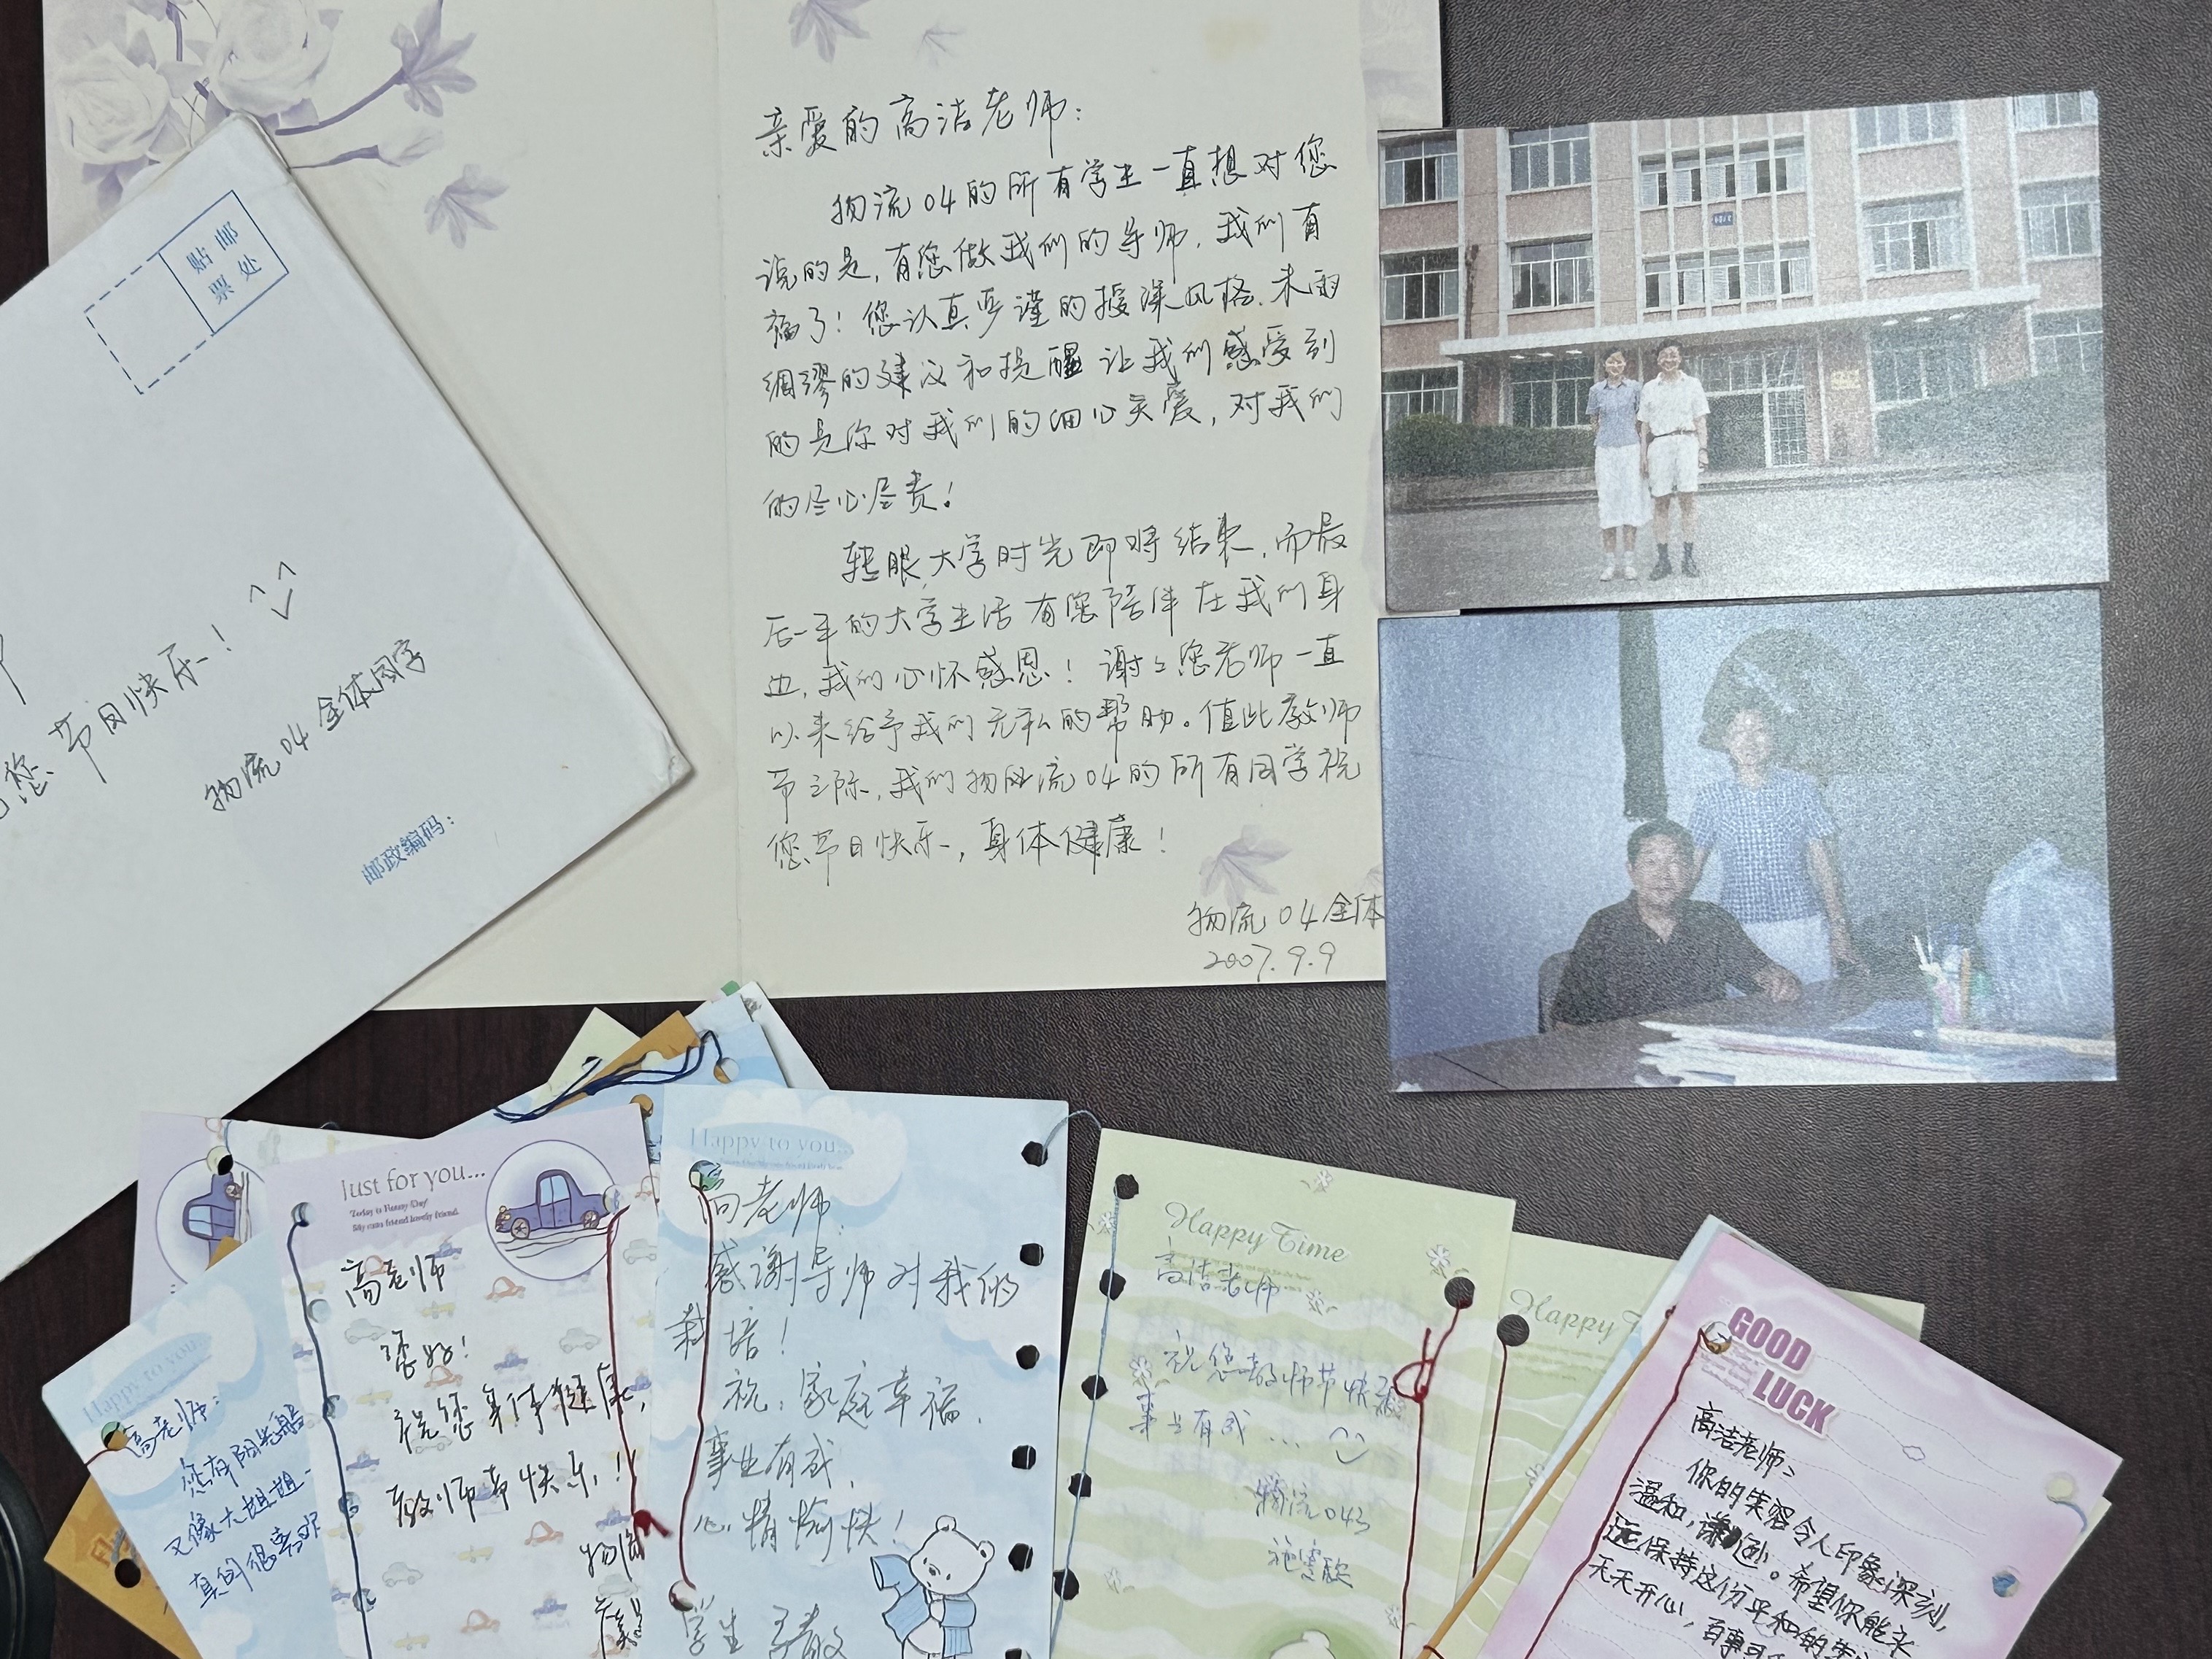 亲爱的高洁老师:
物流04的所有学生一直想对您
说的是,有您做我们的导师,我们有
福了!您认真严谨的授课风格,未雨
绸缪的建议和提醒让我们感受到
的是你对我们的细心关爱,对我们
的尽心尽责!
转眼,大学时光即将结束,而最
后一年的大学生活有您陪伴在我们身
边,我们心怀感恩!谢谢您老师一直
以来给予我们无私的帮助。值此教师
节之际,我们物流04的所有同学祝
您节日快乐,身体健康!
物流04全体
2007.9.9
贴邮
票处
您节日快乐!
物流04全体同学
邮政编码:
Happy to you...
高老师:
您有阳光般
又像大姐姐一
真的很喜欢
Just for you...
Today is Happy Day!
My cute friend lovely friend.
高老师
您好!
祝您身体健康,
教师节快乐!
物流
Happy to you...
高老师:
感谢导师对我的
栽培!
祝:家庭幸福,
事业有成,
心情愉快!
学生
Happy Time
高洁老师
祝您教师节快乐
事业有成...
物流043
Happy T
GOOD
LUCK
高洁老师:
你的笑容令人印象深刻,
温和,谦逊。希望你能永
远保持这份平和的笑
天天开心,百事